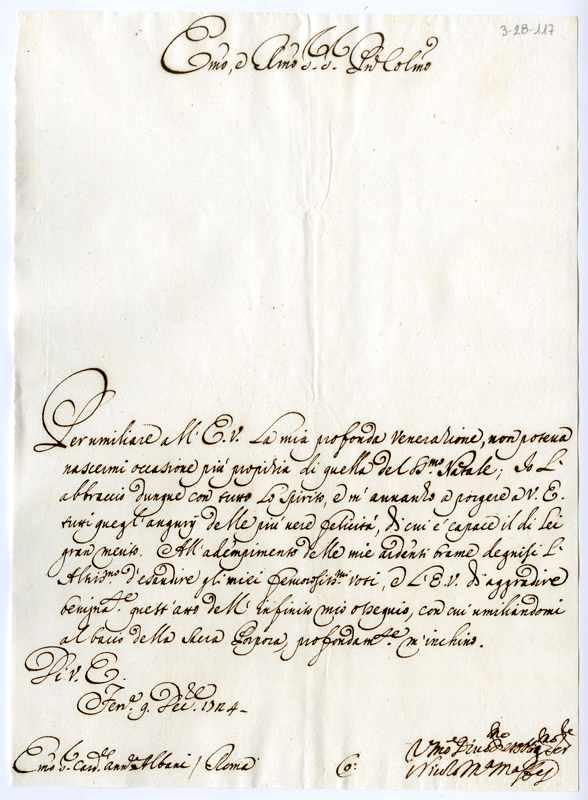 3-28-117
Emo, e Rmo Sig. Sig. Pne Colmo
Per umiliare all' E. V. La mia profonda venerazione, non poteva
nascermi occasione più propizia di quella del SSmo Natale; Io L'
abbraccio dunque con tutto Lo Spirito, e m' avanzo a porgere a V. E.
tutti quegl' augurj delle più vere felicità, di cui è capace il di Lei
gran merito. All' adempimento delle mie ardenti brame degnisi L'
Altissmo d'esaudire gli miei fervorosissmi voti, e L' E. V. di aggradire
benignate quest' atto dell' infinito mio ossequio, con cui umiliandomi
al bacio della Sacra Porpora, profondamte m' inchino.
Di V. E.
9. Decbre 1724
Emo Sr Card. Annle Albani / Roma
Nicolò Ma